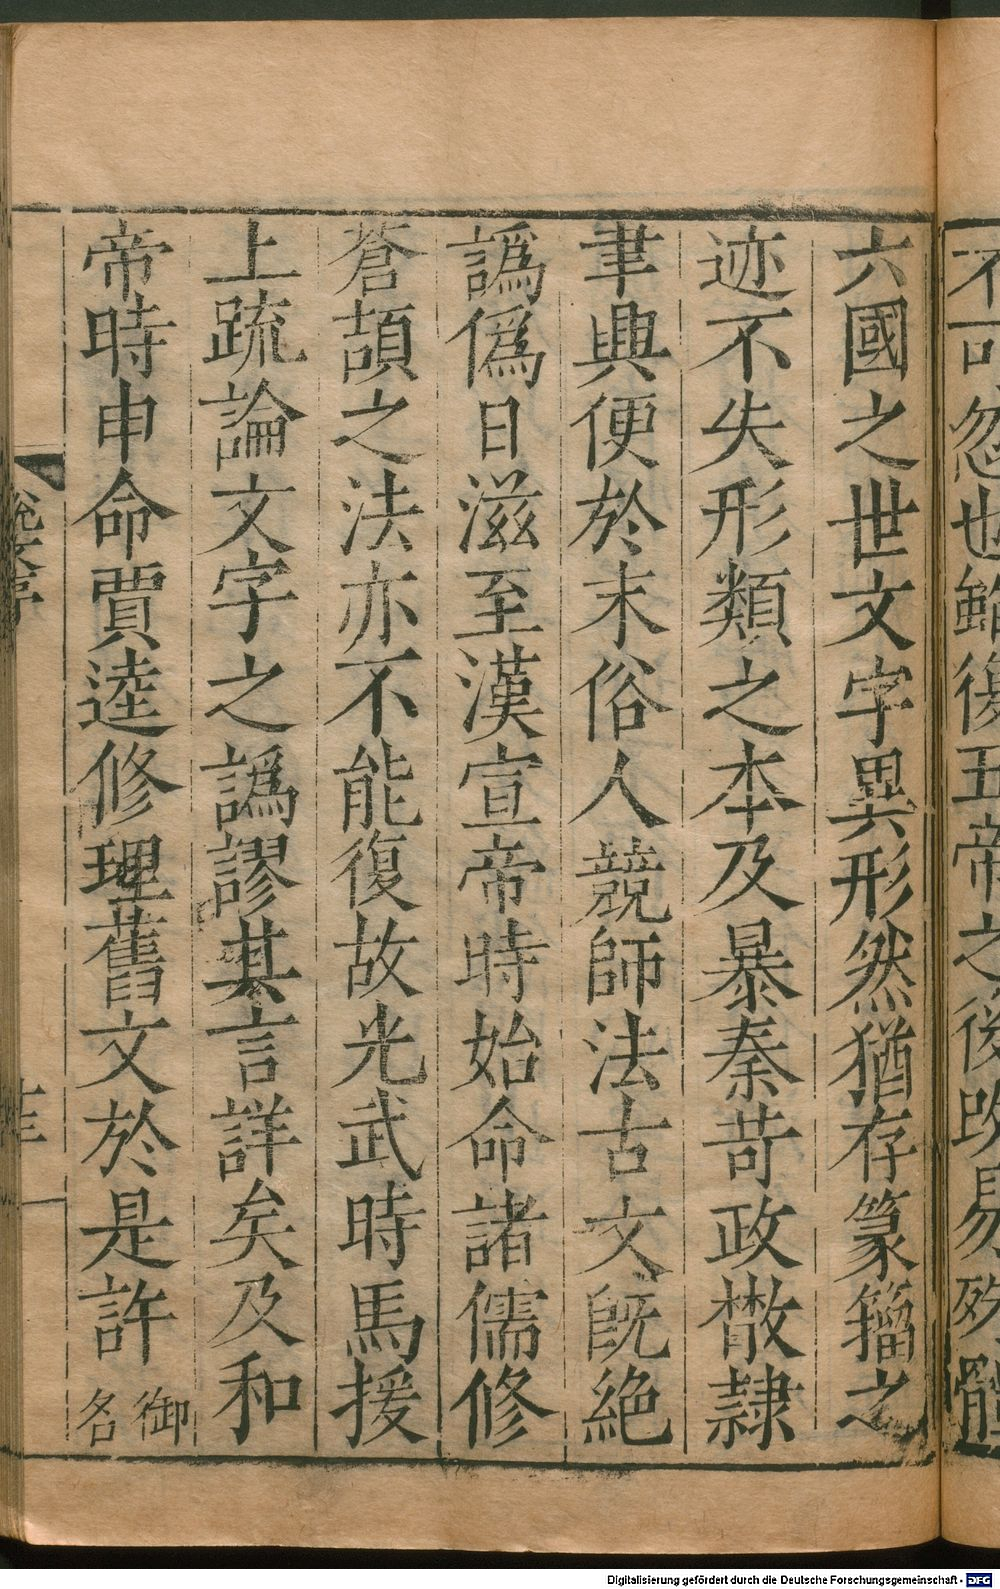 不可忽也雖復五帝之後改易殊體
六國之世文字異形然猶存篆籀之
迹不失形類之本及暴秦苛政散隸
聿興便於末俗人競師法古文既絶
譌僞日滋至漢宣帝時始命諸儒修
蒼頡之法亦不能復故光武時馬援
上疏論文字之譌謬其言詳矣及和
帝時申命賈逵修理舊文於是許御名
說文序
Digitalisierung gefördert durch die Deutsche Forschungsgemeinschaft - DFG